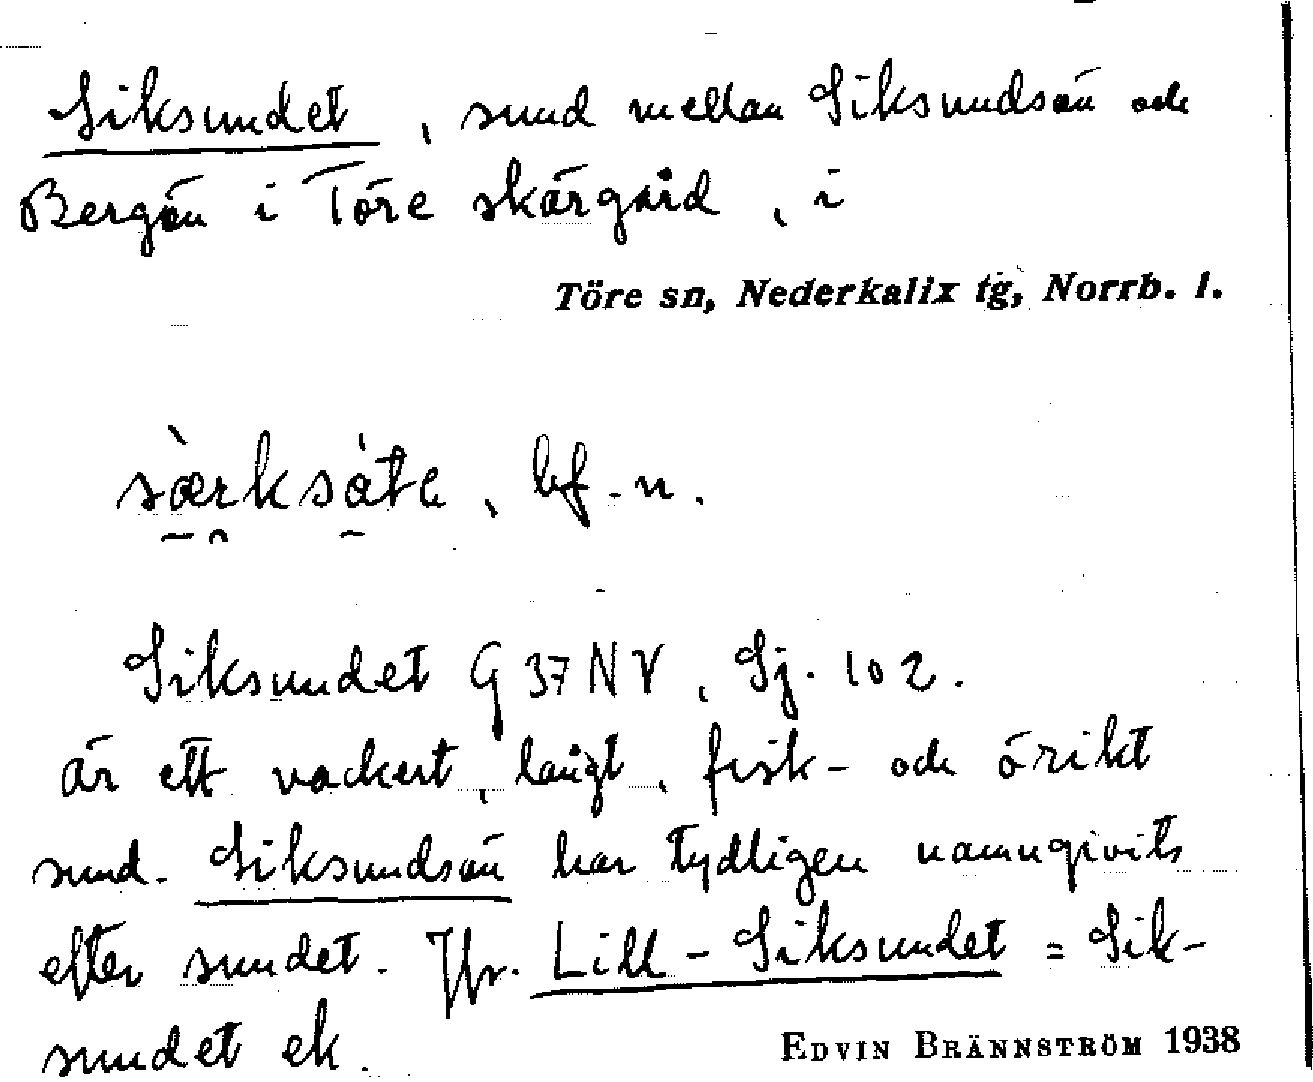 Siksundet, sund mellan Siksundsön och
Bergön i Töre skärgård, i
Töre sn, Nederkalix tg, Norrb. l.
sӕ̀rksáte, bf. n.
Siksundet G 37 NV, Sj. 102.
är ett vackert, långt, fisk- och örikt
sund. Siksundsön har tydligen namngivits
efter sundet. Jfr. Lill-Siksundet = Sik-
sundet ek.
EDVIN BRÄNNSTRÖM 1938